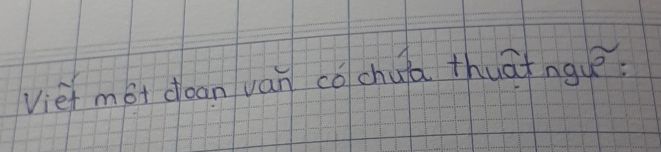 Viết một đoạn văn có chứa thuật ngữ: